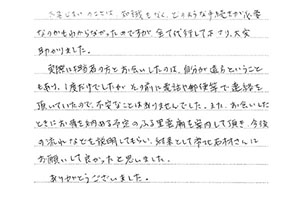 なことは、知識もなく、どのような手続きが必要
なのかもわからなかったのですが、全て代行して下さり、大変
助かりました。
実際に担当の方とお会いしたのは、自分が遠方ということ
もあり、1度だけでしたが、その前に電話や郵便等で連絡を
頂いていたので、不安なことはありませんでした。また、お会いした
ときにお骨を納める予定のふる里霊廟も案内して頂き、今後
の流れなどを説明してもらい、結果として李北石材さんに
お願いして良かったと思いました。
ありがとうございました。